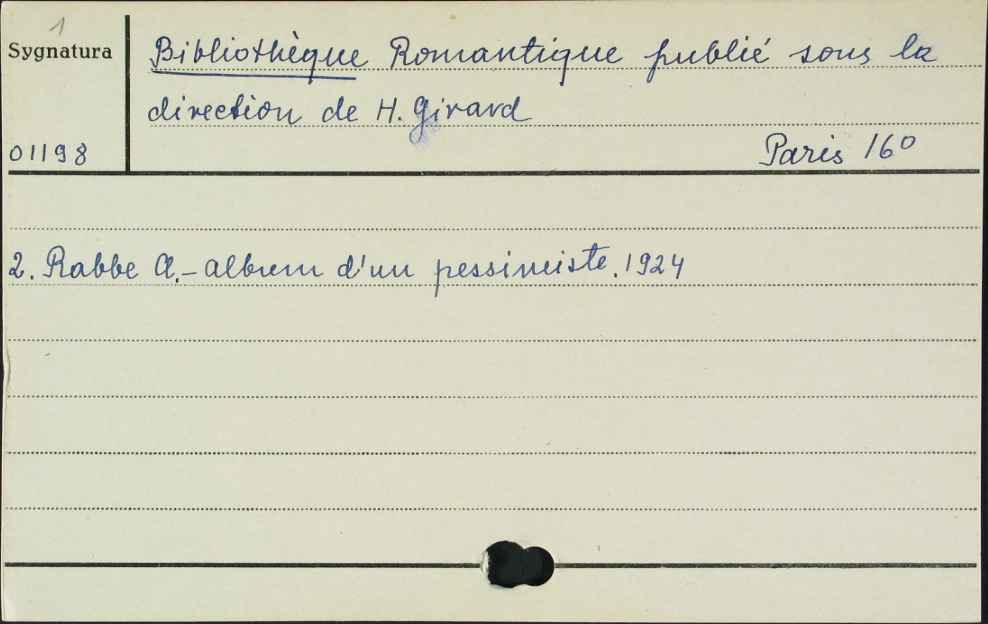 1
Sygnatura
Bibliothèque Romantique publié sous la
direction de H. Girard
01198
Paris 16º
2. Rabbe A. – album d'un pessimiste. 1924